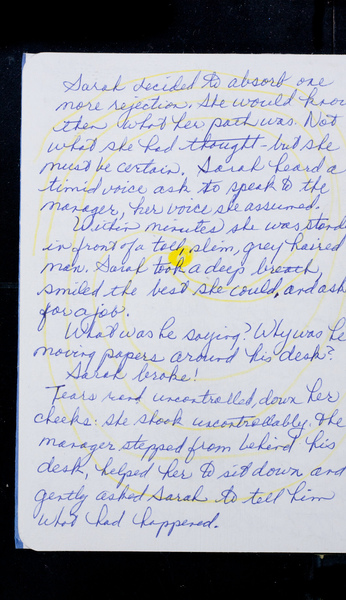 Sarah decided to absorb one
more rejection. She would know
then what her path was. Not
what she had thought - but she
must be certain. Sarah heard a
timid voice ask to speak to the
manager, her voice she assumed.
Within minutes she was stand
in front of a tall, slim, grey haired
man. Sarah took a deep breath,
smiled the best she could, and ask
for a job.
What was he saying? Why was he
moving papers around his desk?
Sarah broke!
Tears rand uncontrolled, down her
cheeks. She shook uncontrollably. The
manager stepped from behind his
desk, helped her to sit down and
gently asked Sarah to tell him
what had happened.